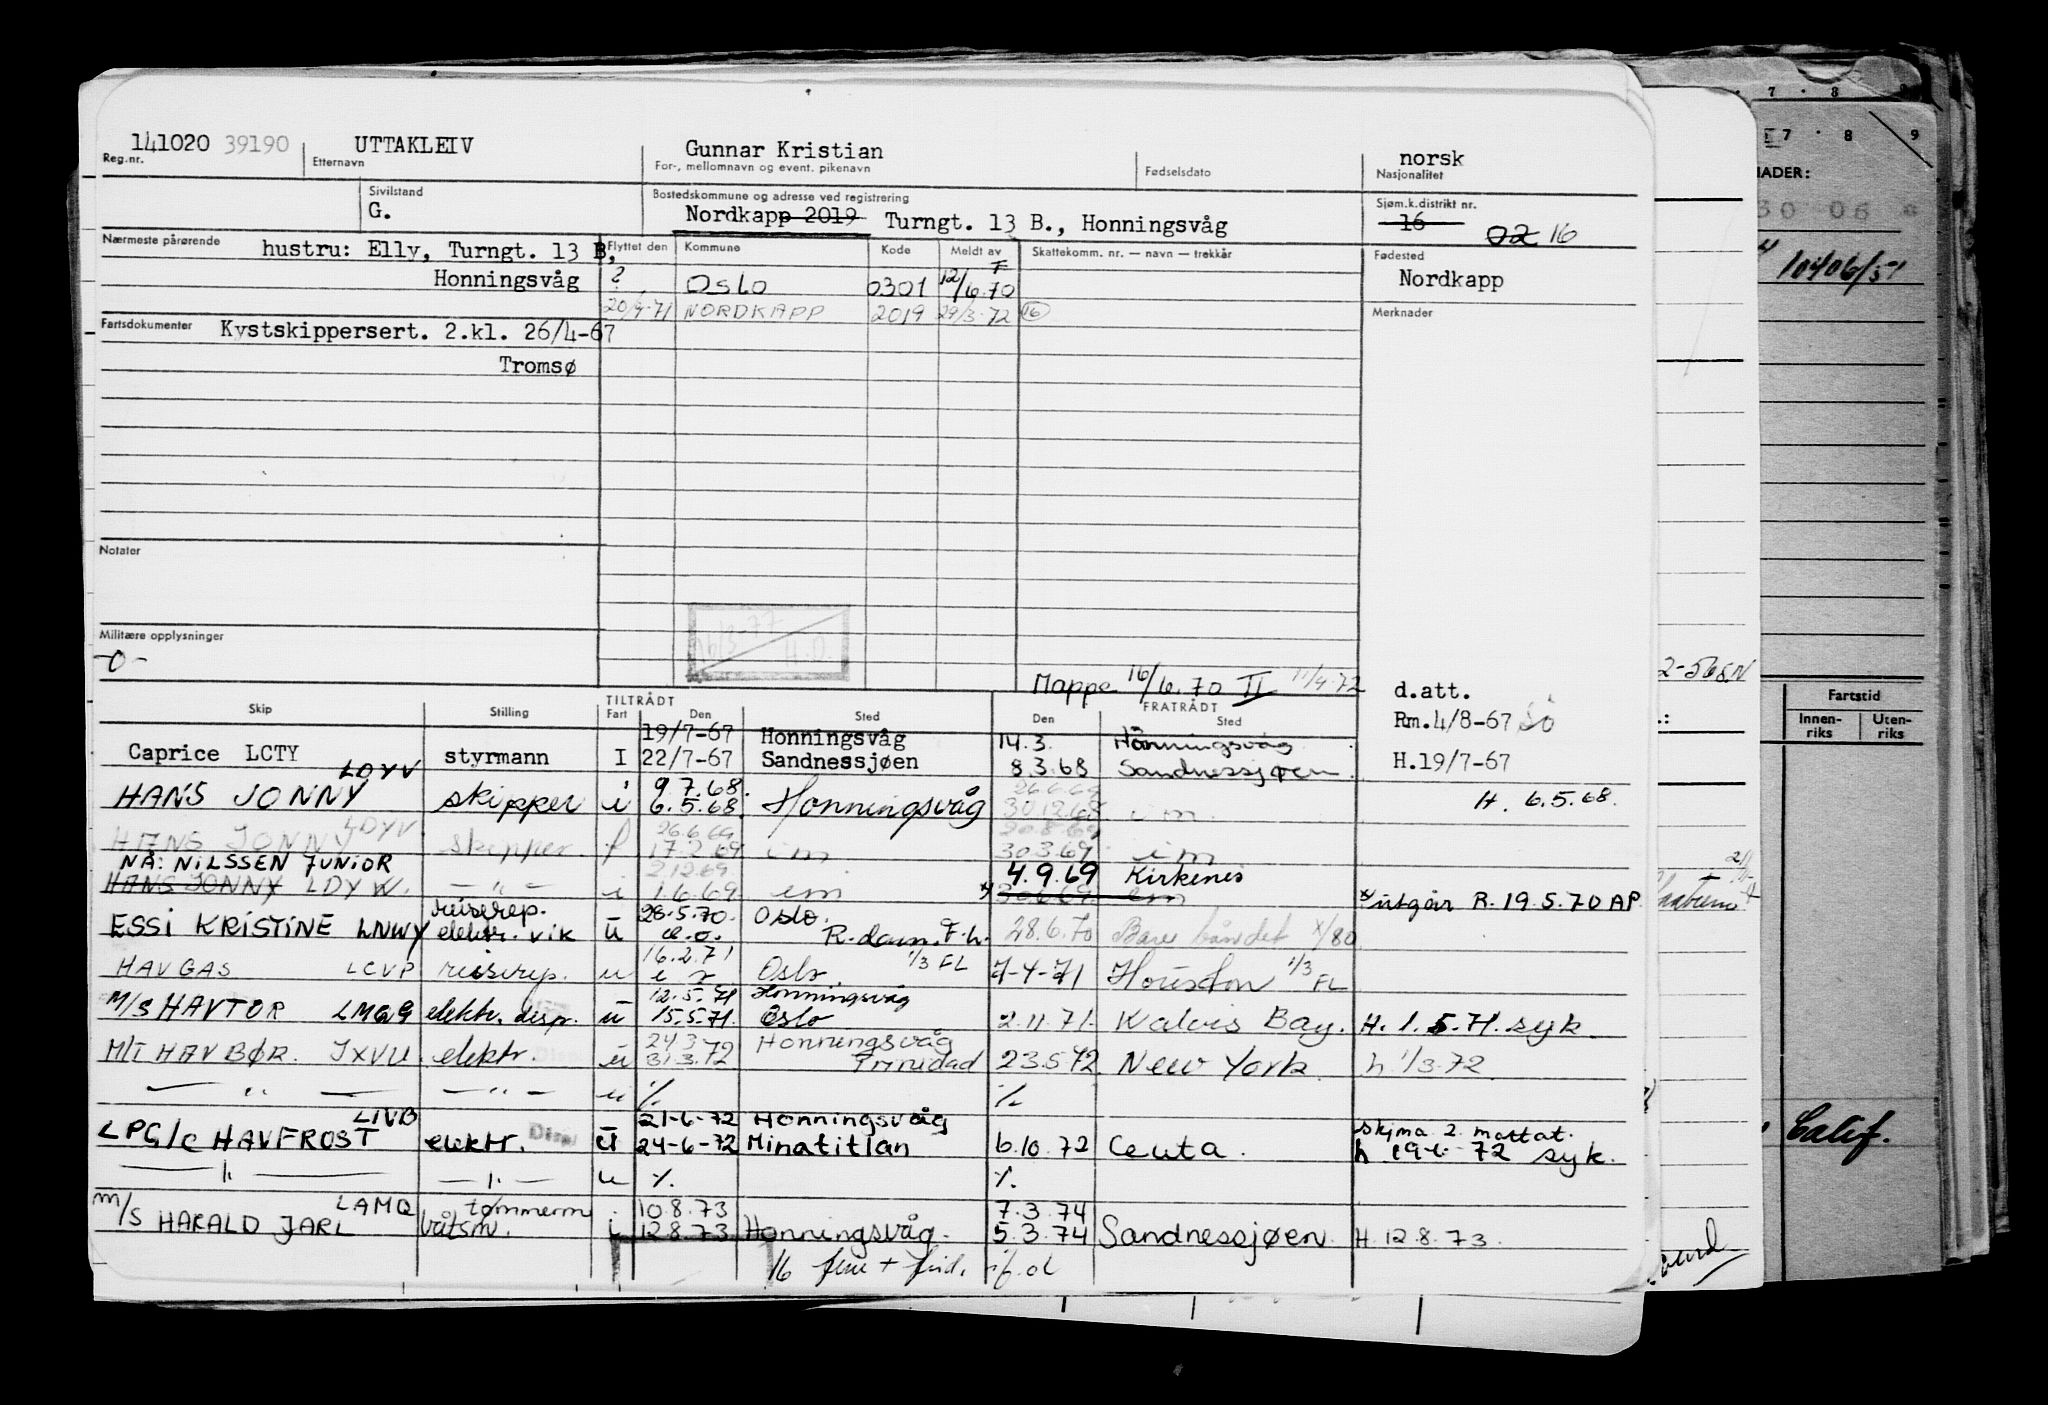 141020 39190 UTTAKLEIV Gunnar Kristian norsk
Reg.nr. Etternavn For-, mellomnavn og event. pikenavn Fødselsdato Nasjonalitet
Sivilstand Bostedskommune og adresse ved registrering Sjøm.k.distrikt nr.
G. Nordkapp 2019 Turngt. 13 B., Honningsvåg 16 02 16
Nærmeste pårørende hustru: Elly, Turngt. 13 B, Flyttet den Kommune Kode Meldt av Skattekomm. nr. — navn — trekkår Fødested
Honningsvåg ? Oslo 0301 12/6.70 Nordkapp
20/9.71 NORDKAPP 2019 29/3.72 16 Merknader
Fartsdokumenter Kystskippersert. 2.kl. 26/4-67
Tromsø
Notater
16/3-77 H.O.
Militære opplysninger
-0-
Mappe 16/6.70 II 11/4.72 d.att.
Skip Stilling TILTRÅDT Fart Den Sted FRATRÅDT Den Sted Rm.4/8-67
19/7-67 Honningsvåg 14.3. Honningsvåg
Caprice LCTY styrmann I 22/7-67 Sandnessjøen 8.3.68 Sandnessjøen H.19/7-67
LDYV 9.7.68. 26.6.69
HANS JONNY skipper i 6.5.68. Honningsvåg 30.12.68 im. H. 6.5.68.
LDYV 26.6.69 20.8.69
HANS JONNY skipper f 17.2.69 im 30.3.69 im
NÅ: NILSSEN JUNIOR 2.12.69. 4.9.69 Kirkenes
HANS JONNY LDYW. — " — i 1.6.69 im x) 30.6.69 im x) utgår R. 19.5.70 AP.
reiserep. 26.5.70. Oslo.
ESSI KRISTINE LNWY elektr. vik ū R.dam. F.h. 28.6.70 Bare båndet x/80
16.2.71 1/3 FL
HAVGAS LCVP reiserep. u Oslo 7-4-71 Houston 1/3 FL
12.5.71 Honningsvåg
M/S HAVTOR LMQG elektr. disp. ū 15.5.71. Oslo 2.11.71. Walvis Bay. H. 1.5.71. syk
24.3 Honningsvåg
M/T HAVBØR. JXVU elektr. ū 31.3.72 Trinidad 23.5.72 New York. h 1/3.72.
— " — — " — u ٪ ٪
LIVB 21-6-72 Honningsvåg skjma 2. mottat.
LPG/C HAVFROST elektr. Disp ū 24-6-72 Minatitlan 6.10.72 Ceuta. h 19-6-72 syk.
— " — — " — u ٪ ٪
LAMQ tømmerm 10.8.73 7.3.74
m/s HARALD JARL båtsm. i 12.8.73 Honningsvåg. 5.3.74 Sandnessjøen. H. 12.8.73.
16
7 8
7 8 9
30 06
10406/51
2-568N
Fartstid
Innen-riks Uten-riks
Calif.